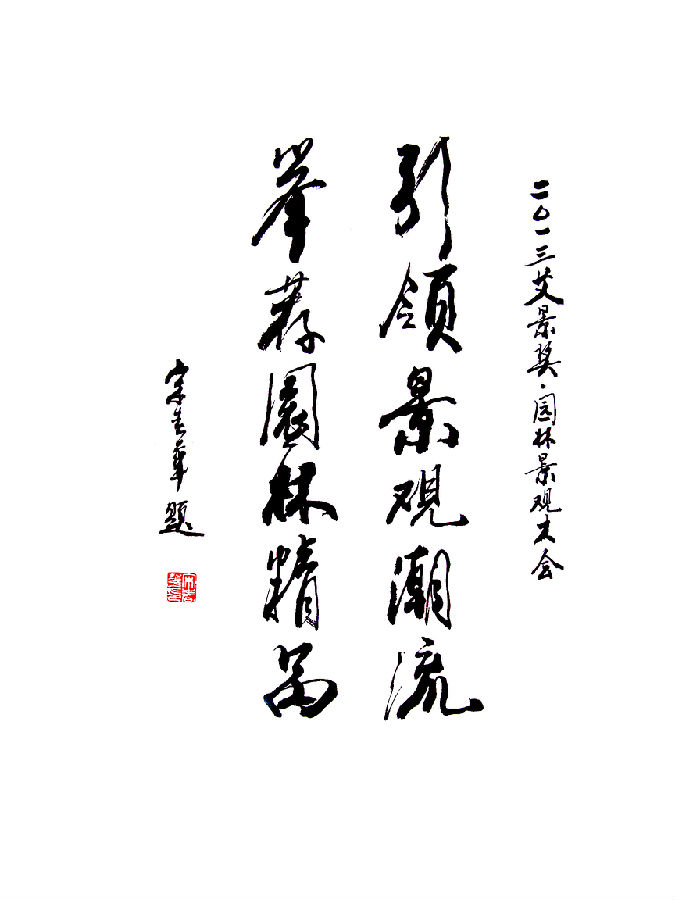 二〇一三艾景奖·园林景观大会
引領景观潮流
举荐園林精品
宋春華题